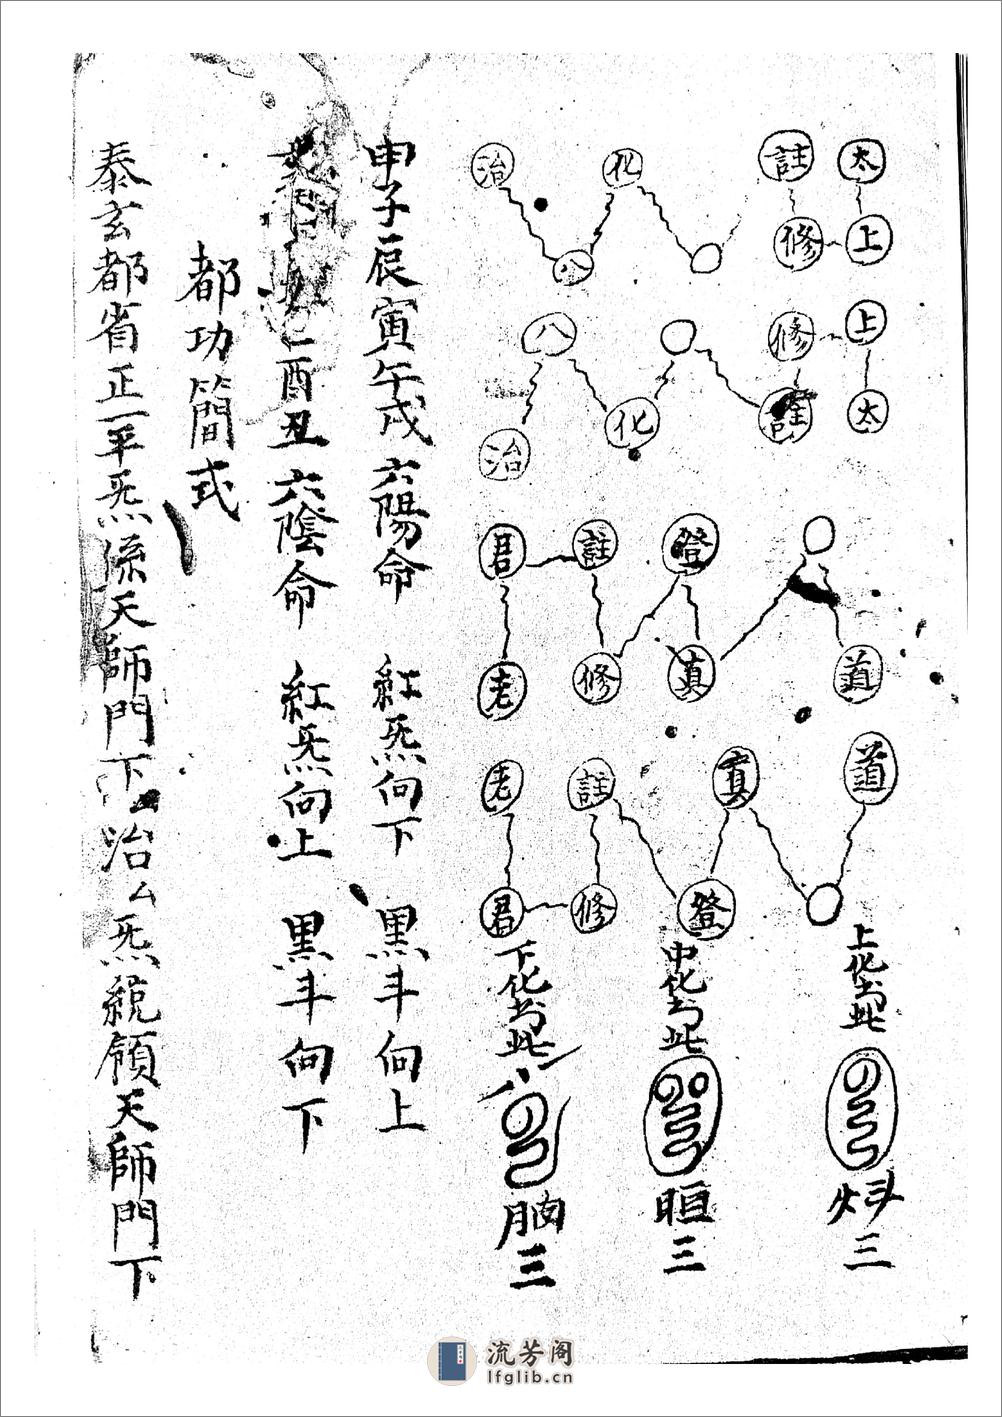 太上修註化八治
上太修註化八治
道真登修註君老
道真登註修君老
上化书此
三
中化书此
三
下化书此
三
申子辰寅午戌六陽命 紅炁向下 黑斗向上
酉丑六陰命 紅炁向上 黑斗向下
都功簡式
泰玄都省正一平炁係天師門下厶治厶炁統領天師門下
流芳阁
lfglib.cn